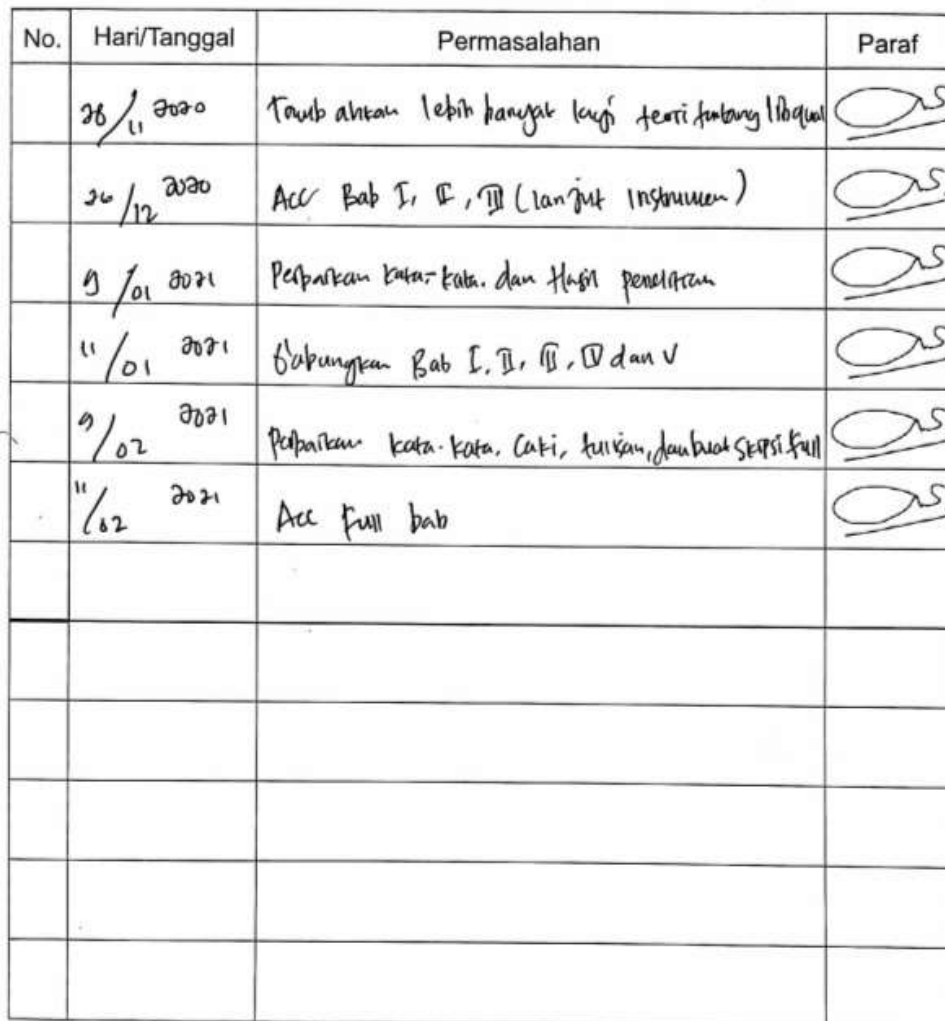 No. Hari/Tanggal Permasalahan Paraf
28/11 2020 Tambahkan lebih banyak lagi teori tentang libqual
26/12 2020 Acc Bab I, II, III (lanjut Instrumen)
9/01 2021 Perbaikan kata-kata. dan Hasil penelitian
11/01 2021 Gabungkan Bab I, II, III, IV dan V
9/02 2021 Perbaikan kata-kata, tulisan, dan buat skripsi full
11/02 2021 Acc Full bab